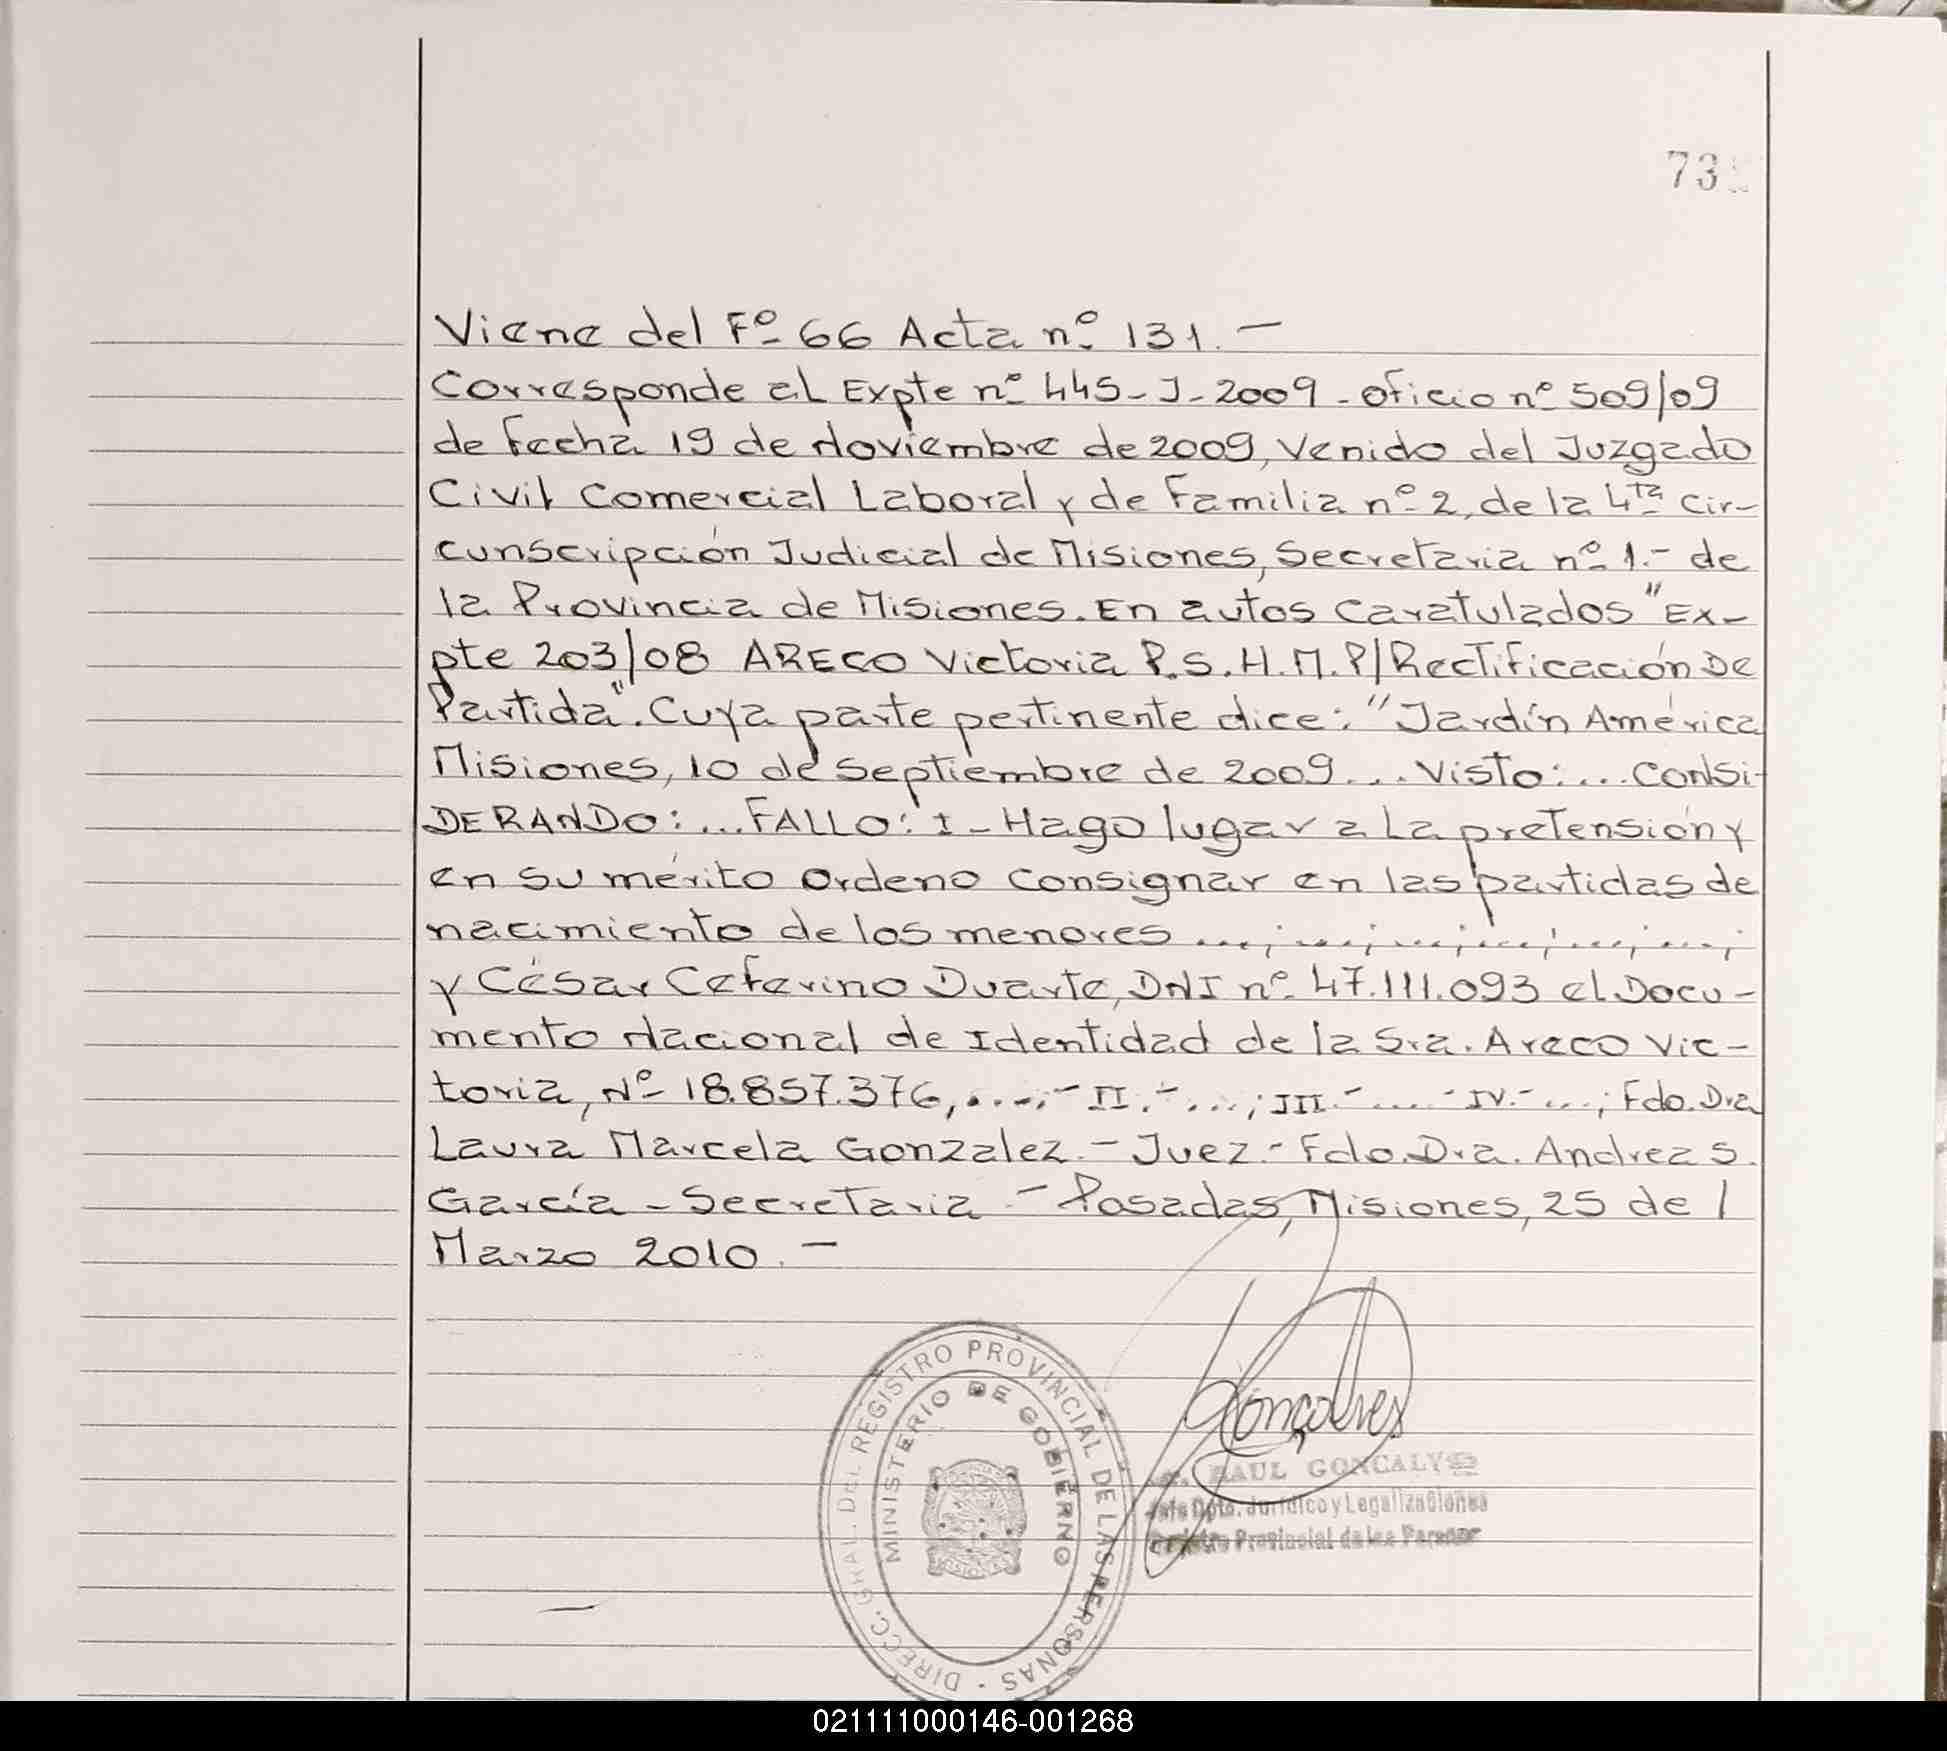 73
Viene del Fº 66 Acta nº 131.-
Corresponde al Expte nº 445-J-2009-oficio nº 509/09
de fecha 19 de Noviembre de 2009, Venido del Juzgado
Civil Comercial Laboral y de Familia nº 2, de la 4ta Cir-
cunscripción Judicial de Misiones, Secretaria nº 1.- de
la Provincia de Misiones. En autos caratulados "Ex-
pte 203/08 ARECO Victoria P.S.H.M.P/Rectificación De
Partida". Cuya parte pertinente dice: "Jardín América
Misiones, 10 de Septiembre de 2009... Visto:... CONSI-
DERANDO:... FALLO: I-Hago lugar a la pretensión y
en su mérito Ordeno Consignar en las partidas de
nacimiento de los menores ...; ...; ...; ...; ...; ...;
y César Ceferino Duarte, DNI nº 47.111.093 el Docu-
mento Nacional de Identidad de la Sra. Areco Vic-
toria, Nº 18.857.376, ...;- II.- ...; III.- ....- IV.- ...; Fdo. Dra
Laura Marcela Gonzalez.- Juez.- Fdo. Dra. Andrea S.
García - Secretaria.- Posadas, Misiones, 25 de
Marzo 2010.-
DIRECC. GRAL. DEL REGISTRO PROVINCIAL DE LAS PERSONAS
MINISTERIO DE GOBIERNO
MISIONES
Gonçalves
RAUL GONCALVES
Jefe Dpto. Jurídico y Legalizaciones
Registro Provincial de las Personas
021111000146-001268